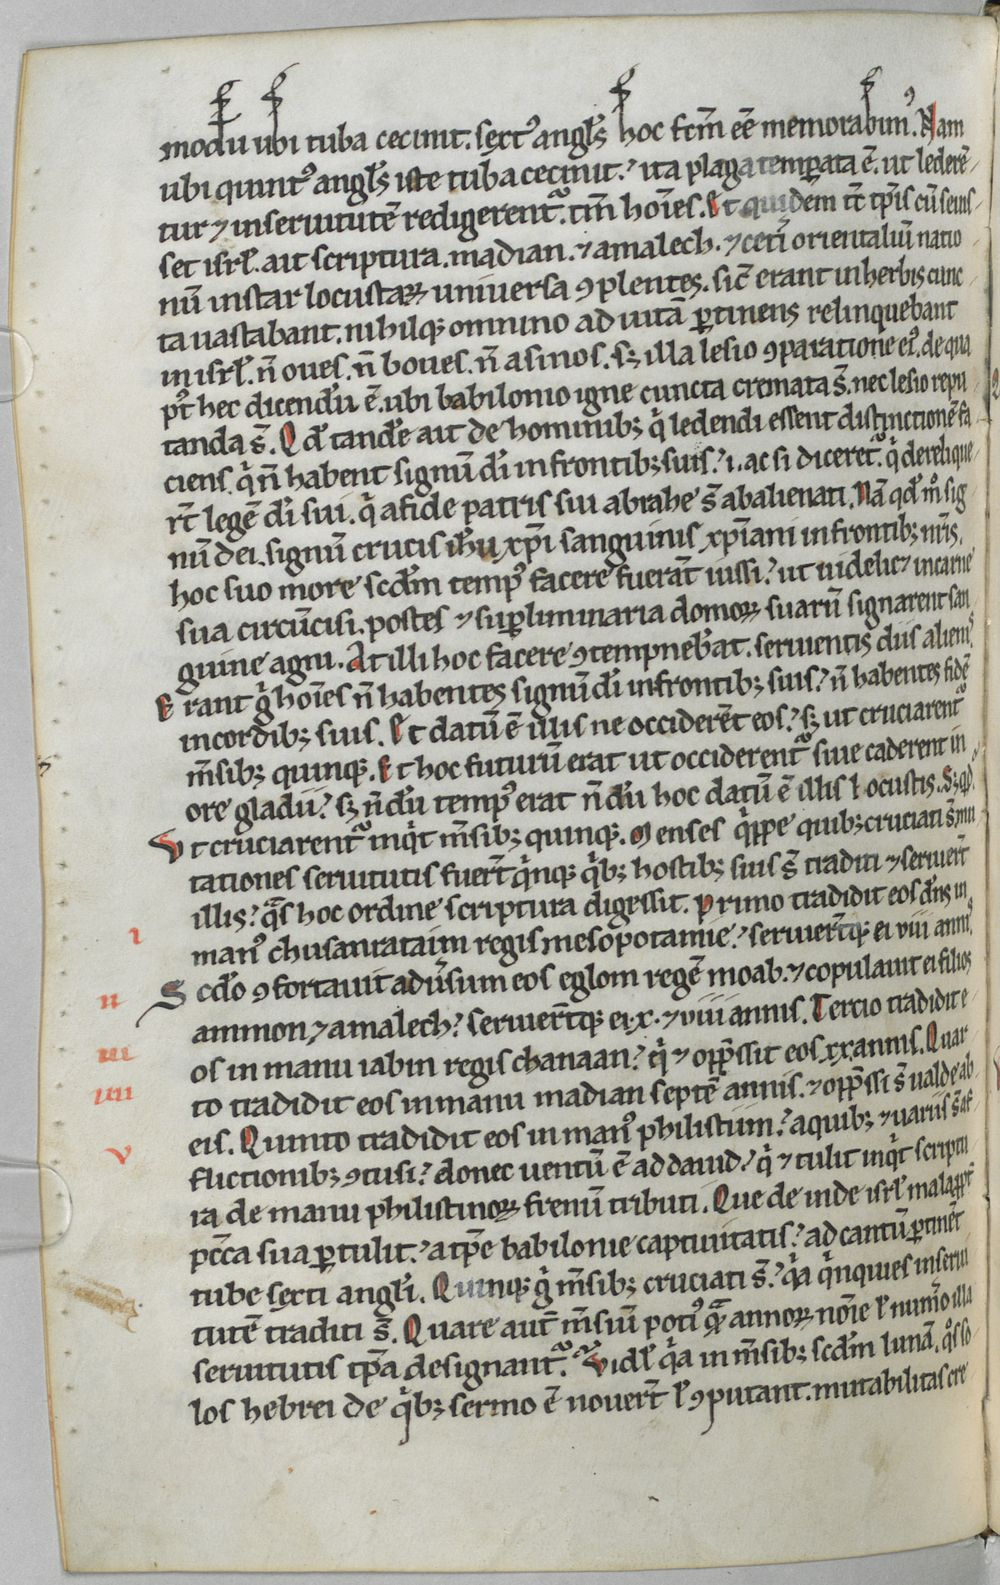 modū ubi tuba cecinit. sextꝰ anglꝰs hoc fcm̄ eē memorabimꝰ. Nam
ubi quintꝰ angl̄s iste tuba cecinit.ʼ ita plaga temꝑata ē. ut lederē-
tur ⁊ in seruitutē redigerent᷑. tm̄ hoīes. Et quidem tc̄ tp̄is cū seuis-
set isrl̄. ait scriptura. madian. ⁊ amalech. ⁊ cet̄i orientaliū natio
nū instar locustaꝝ uniuersa ꝯplentes. sic̄ erant in herbis cunc
ta uastabant. nihilqꝫ omnino ad uitā ꝑtinens relinquebant
in isrl̄. n̄ oues. n̄ boues. n̄ asinos. sꝫ illa lesio ꝯparatione eiꝰ. de qua
pꝰt hec dicendū ē. ubi babilonio igne cuncta cremata s̄. nec lesio repu
tanda s̄. Qd̄ tandē ait de hominibꝫ qͥ ledendi essent distinctionē fa
ciens. qͥ n̄ habent signū dī in frontibꝫ suis.ʼ i. ac si diceret᷑. qͥ derelique
rt̄ legē dī sui. qͥ a fide patris sui abrahe s̄ abalienati. Nā qd̄ mͦ sig
nū dei. signū crucis ih̄u xp̄i sanguinis xp̄iani in frontibꝫ nr̄is.
hoc suo more scd̄m tempꝰ facere fuerāt iussi.ʼ ut uidelic⁊ in carne
sua circūcisi. postes ⁊ suꝑliminaria domoꝝ suarū signarent san
guine agni. At illi hoc facere ꝯtempneb̄at. seruientis diis alienis.
Erant g̊ hoīes n̄ habentes signū dī in frontibꝫ suis.ʼ n̄ habentes fidē
in cordibꝫ suis. Et datū ē illis ne occiderēt eos.ʼ sꝫ ut cruciarent᷑
m̄sibꝫ quinqꝫ. Et hoc futurū erat ut occiderent᷑ siue caderent in
ore gladii.ʼ sꝫ n̄dū tempꝰ erat n̄dū hoc datū ē illis locustis. Sꝫ qd̄.
Vt cruciarent᷑ inqͥt m̄sibꝫ quinqꝫ. Menses qͥppe quibꝫ cruciati s̄ mu
tationes seruitutis fuert̄ qͥnqꝫ qͥbꝫ hostibꝫ suis s̄ traditi ⁊ seruiert̄
illis.ʼ qͣs hoc ordine scriptura digessit. Primo tradidit eos dn̄s in
i manꝰ chusanrataim regis mesopotamie.ʼ seruiert̄qꝫ ei viii annis.
ii Scd̄o ꝯfortauit adūsum eos eglom regē moab. ⁊ copulauit ei filios
ammon ⁊ amalech.ʼ seruiert̄qꝫ ei x. ⁊ viii annis. Tercio tradidit e-
iii os in manu iabin regis chanaan.ʼ qͥ ⁊ opp̄ssit eos xx annis. Quar
iiii to tradidit eos in manu madian septē annis. ⁊ opp̄ssi s̄ ualde ab
eis. Quinto tradidit eos in manꝰ philistiim.ʼ a quibꝫ ⁊ uariis s̄ af-
v flictionibꝫ ꝯtusi.ʼ donec uentū ē ad dauid.ʼ qͥ ⁊ tulit inqͥt scriptu
ra de manu philistinoꝝ frenū tributi. Que deinde isrl̄ mala ꝓpt̄
pccͣa sua ꝑtulit.ʼ a tp̄e babilonie captiuitatis.ʼ ad cantū ꝑtinēt
tube sexti angl̄i. Quinqꝫ g̊ m̄sibꝫ cruciati s̄.ʼ qͥa qͥnquies in serui
tutē traditi s̄. Quare aut̄ m̄siū potiꝰ qͣ annoꝝ noīe ł num̄o illa
seruitutis tp̄a designant᷑.ʼ Vidꝫ qͥa in m̄sibꝫ scd̄m lunā. qͦs so
los hebrei de qͥbꝫ sermo ē nouert̄ ł ꝯputant. mutabilitas cre